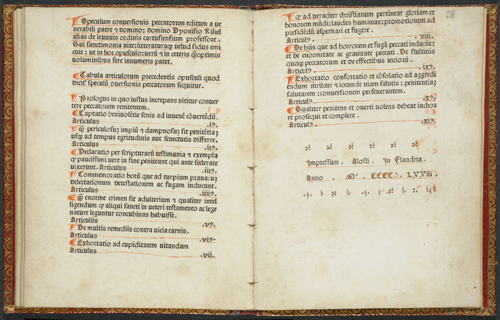 Speculum conversionis peccatorum editum a ue
nerabili patre et domino: domino Dyonisio Rikel
alias de leuuuis ordinis cartusiensium professore.
Cui sanctimonia uite: litteraturaque uelud sidus emi
cuit: ut in hoc opusculo: uerū et in ceteris quoptimis
voluminibus fere innumeris patet.
Tabula articulorum precedentis opusculi quod
dicitur speculū conversionis peccatorum sequitur.
Prologus in quo ipsius increpans nititur conuer
tere peccatorem renitentem.
Captatio beniuolētie senis ad iuuenē cōuertēdū.
Articulus .i9.
periculosum impiū et dampnosum sit penitētiam
usque ad tempus egritudinis aut senectutis differre.
Articulus .ii9.
Declaratio per scripturarum testimonia et exempla
paucissimi uere in fine peniteant qui ante scelerate
uixerunt. Articulus .iii9.
Commemoratio horum que ad turpium prauarum
delectationum detestationem ac fugam inducunt.
Articulus .iiii9.
enorme crimen sit adulterium et qualiter intel
ligendum quod aliqui sancti in ueteri testamento ac lege
nature leguntur concubinas habuisse.
Articulus .v9.
De multis remediis contra uicia carnis.
Articulus .vi9.
Exhortatio ad cupiditatem uitandam
Articulus .vii.
28
ad veraciter christianum pertineat gloriam et
honorem mūdi: laudes humanas: promotionem ad
presidēdū asperuari et fugere.
Articulus .viii.
De hiis que ad horrorem et fugā peccati inducunt
et de enormitate ac grauitate peccati. De stultitia
quoque peccatorum et de effectibus uitiorū.
Articulus .ix9.
Exhortatio confortatio et cōsolatio ad aggredi
endum uiriliter et iocunde uiam salutis: penitentiamque
salutarem: conuersionem perseuerantem.
Articulus .x9.
Qualiter penitens et conuerti uolens debeat inchoa
re prosequi et complere.
Articulus .xi9.
Impressum Alosti In flandria.
Anno M° CCCC° LXXIII.